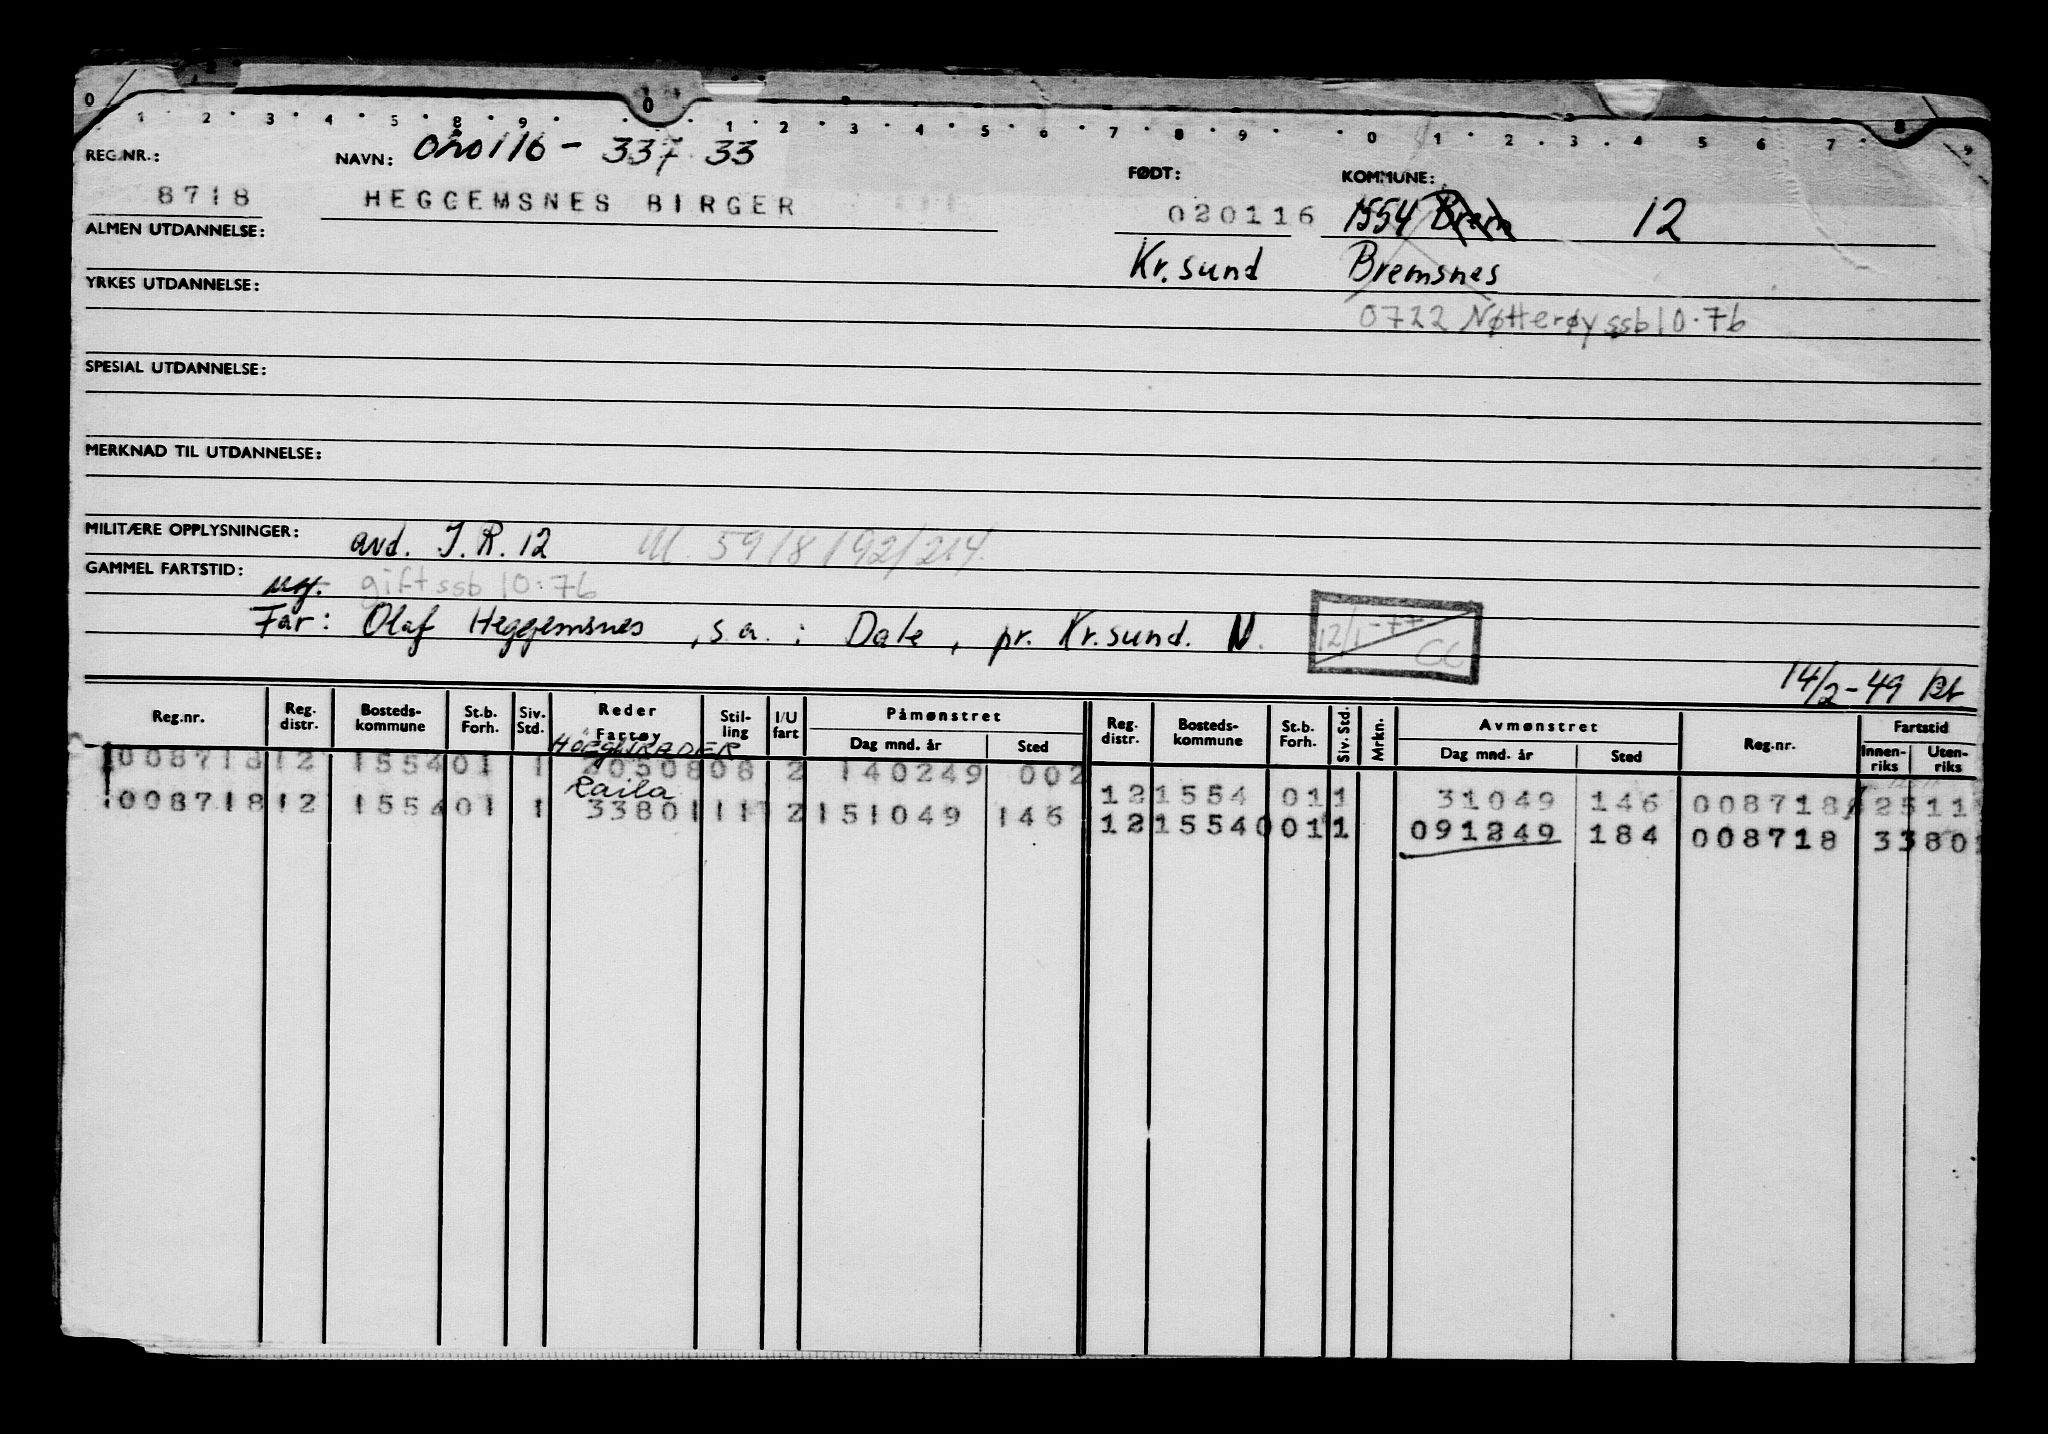 0 0 8 9
1 2 3 4 5 8 9 1 2 3 4 5 6 7 8 9 0 1 2 3 4 5 6 7
REG.NR.: NAVN: 020116 - 337 33 FØDT: KOMMUNE:
8718 HEGGEMSNES BIRGER 020116 1554 Brem 12
ALMEN UTDANNELSE: Kr. sund Bremsnes
YRKES UTDANNELSE: 0722 Nøtterøy ssb 10.76
SPESIAL UTDANNELSE:
MERKNAD TIL UTDANNELSE:
MILITÆRE OPPLYSNINGER: avd. I.R. 12 M. 59/8/92/214.
GAMMEL FARTSTID: ug. gift ssb 10.76
Far: Olaf Heggemsnes, s.a.: Dale, pr. Kr.sund. N. 12/1-77 CC
14/2-49
Reg.nr. Reg. distr. Bosteds-kommune St.b. Forh. Siv. Std. Reder Fartøy Stil-ling I/U fart Påmønstret Dag mnd. år Sted Reg. distr. Bosteds-kommune St.b. Forh. Siv. Std. Mrkn. Avmønstret Dag mnd. år Sted Reg.nr. Fartstid Innen-riks Uten-riks
008718 12 1554 01 1 2050808 2 140249 002 12 1554 01 1 31049 146 008718 2511
Raila
008718 12 1554 01 1 33801 11 2 151049 146 12 15540 01 1 091249 184 008718 3380